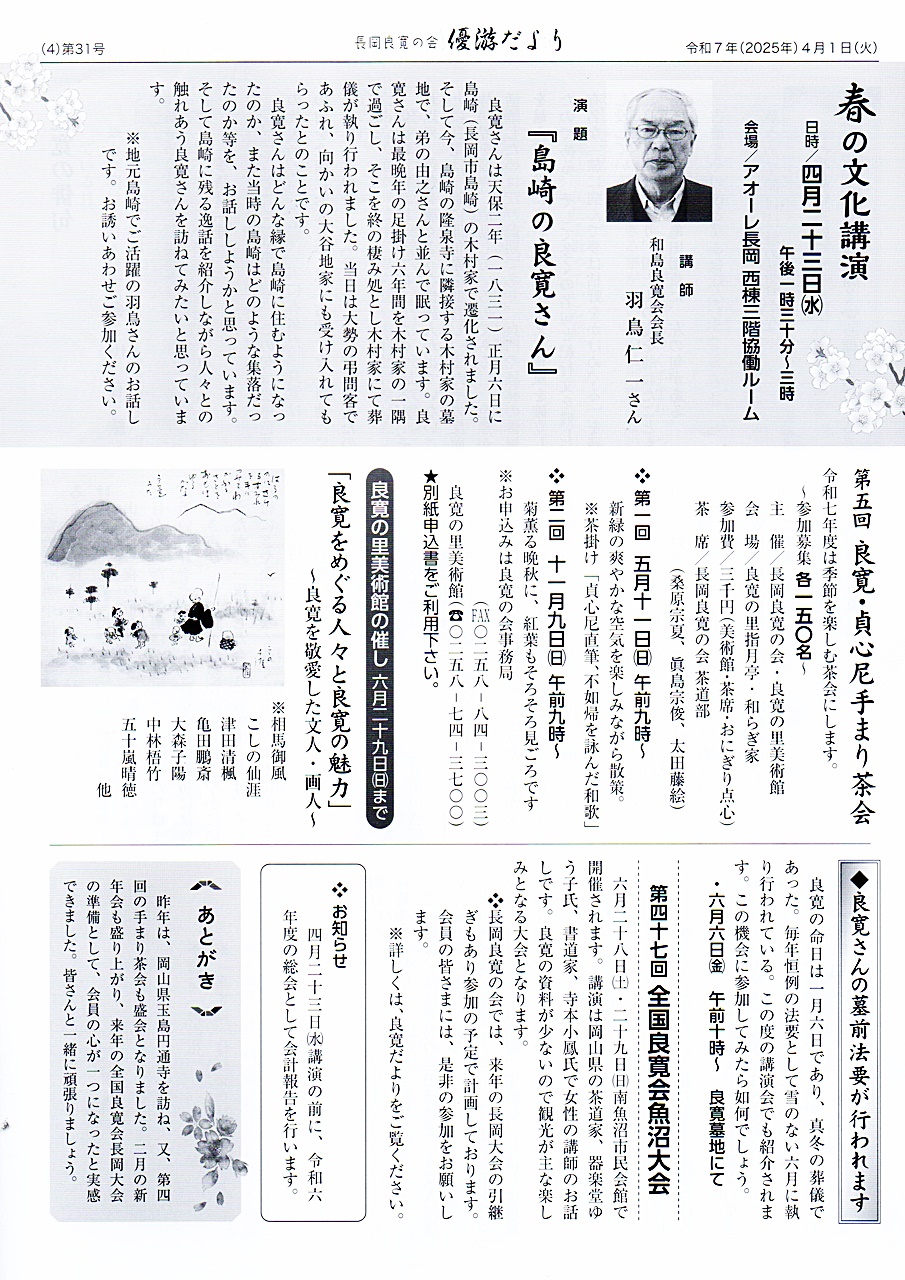 (4)第31号
長岡良寛の会 優游だより
令和7年(2025年)4月1日(火)
春の文化講演
日時／四月二十三日㈬
午後一時三十分〜三時
会場／アオーレ長岡 西棟三階協働ルーム
講師
和島良寛会会長
羽鳥仁一さん
演題
『島崎の良寛さん』
良寛さんは天保二年（一八三一）正月六日に
島崎（長岡市島崎）の木村家で遷化されました。
そして今、島崎の隆泉寺に隣接する木村家の墓
地で、弟の由之さんと並んで眠っています。良
寛さんは最晩年の足掛け六年間を木村家の一隅
で過ごし、そこを終の棲み処とし木村家にて葬
儀が執り行われました。当日は大勢の弔問客で
あふれ、向かいの大谷地家にも受け入れても
らったとのことです。
良寛さんはどんな縁で島崎に住むようになっ
たのか、また当時の島崎はどのような集落だっ
たのか等を、お話ししようかと思っています。
そして島崎に残る逸話を紹介しながら人々との
触れあう良寛さんを訪ねてみたいと思っていま
す。
※地元島崎でご活躍の羽鳥さんのお話し
です。お誘いあわせご参加ください。
第五回 良寛・貞心尼手まり茶会
令和七年度は季節を楽しむ茶会にします。
〜参加募集 各一五〇名〜
主　催／長岡良寛の会・良寛の里美術館
会　場／良寛の里指月亭・和らぎ家
参加費／三千円（美術館・茶席・おにぎり点心）
茶　席／長岡良寛の会 茶道部
（桑原宗夏、眞島宗俊、太田藤絵）
❖ 第一回 五月十一日㈰ 午前九時〜
新緑の爽やかな空気を楽しみながら散策。
※茶掛け「貞心尼直筆、不如帰を詠んだ和歌」
❖ 第二回 十一月九日㈰ 午前九時〜
菊薫る晩秋に、紅葉もそろそろ見ごろです
※お申込みは良寛の会事務局
（FAX〇二五八－八四－三〇〇三）
良寛の里美術館（☎〇二五八－七四－三七〇〇）
★別紙申込書をご利用下さい。
良寛の里美術館の催し 六月二十九日㈰まで
「良寛をめぐる人々と良寛の魅力」
〜良寛を敬愛した文人・画人〜
※相馬御風
こしの仙涯
津田清楓
亀田鵬斎
大森子陽
中林梧竹
五十嵐晴徳
他
◆良寛さんの墓前法要が行われます
良寛の命日は一月六日であり、真冬の葬儀で
あった。毎年恒例の法要として雪のない六月に執
り行われている。この度の講演会でも紹介されま
す。この機会に参加してみたら如何でしょう。
・六月六日㈮　午前十時〜　良寛墓地にて
第四十七回 全国良寛会魚沼大会
六月二十八日㈯・二十九日㈰南魚沼市民会館で
開催されます。講演は岡山県の茶道家、器楽堂ゆ
う子氏、書道家、寺本小鳳氏で女性の講師のお話
しです。良寛の資料が少ないので観光が主な楽し
みとなる大会となります。
❖長岡良寛の会では、来年の長岡大会の引継
ぎもあり参加の予定で計画しております。
会員の皆さまには、是非の参加をお願いし
ます。
※詳しくは、良寛だよりをご覧ください。
❖ お知らせ
四月二十三日㈬講演の前に、令和六
年度の総会として会計報告を行います。
あとがき
昨年は、岡山県玉島円通寺を訪ね、又、第四
回の手まり茶会も盛会となりました。二月の新
年会も盛り上がり、来年の全国良寛会長岡大会
の準備として、会員の心が一つになったと実感
できました。皆さんと一緒に頑張りましょう。